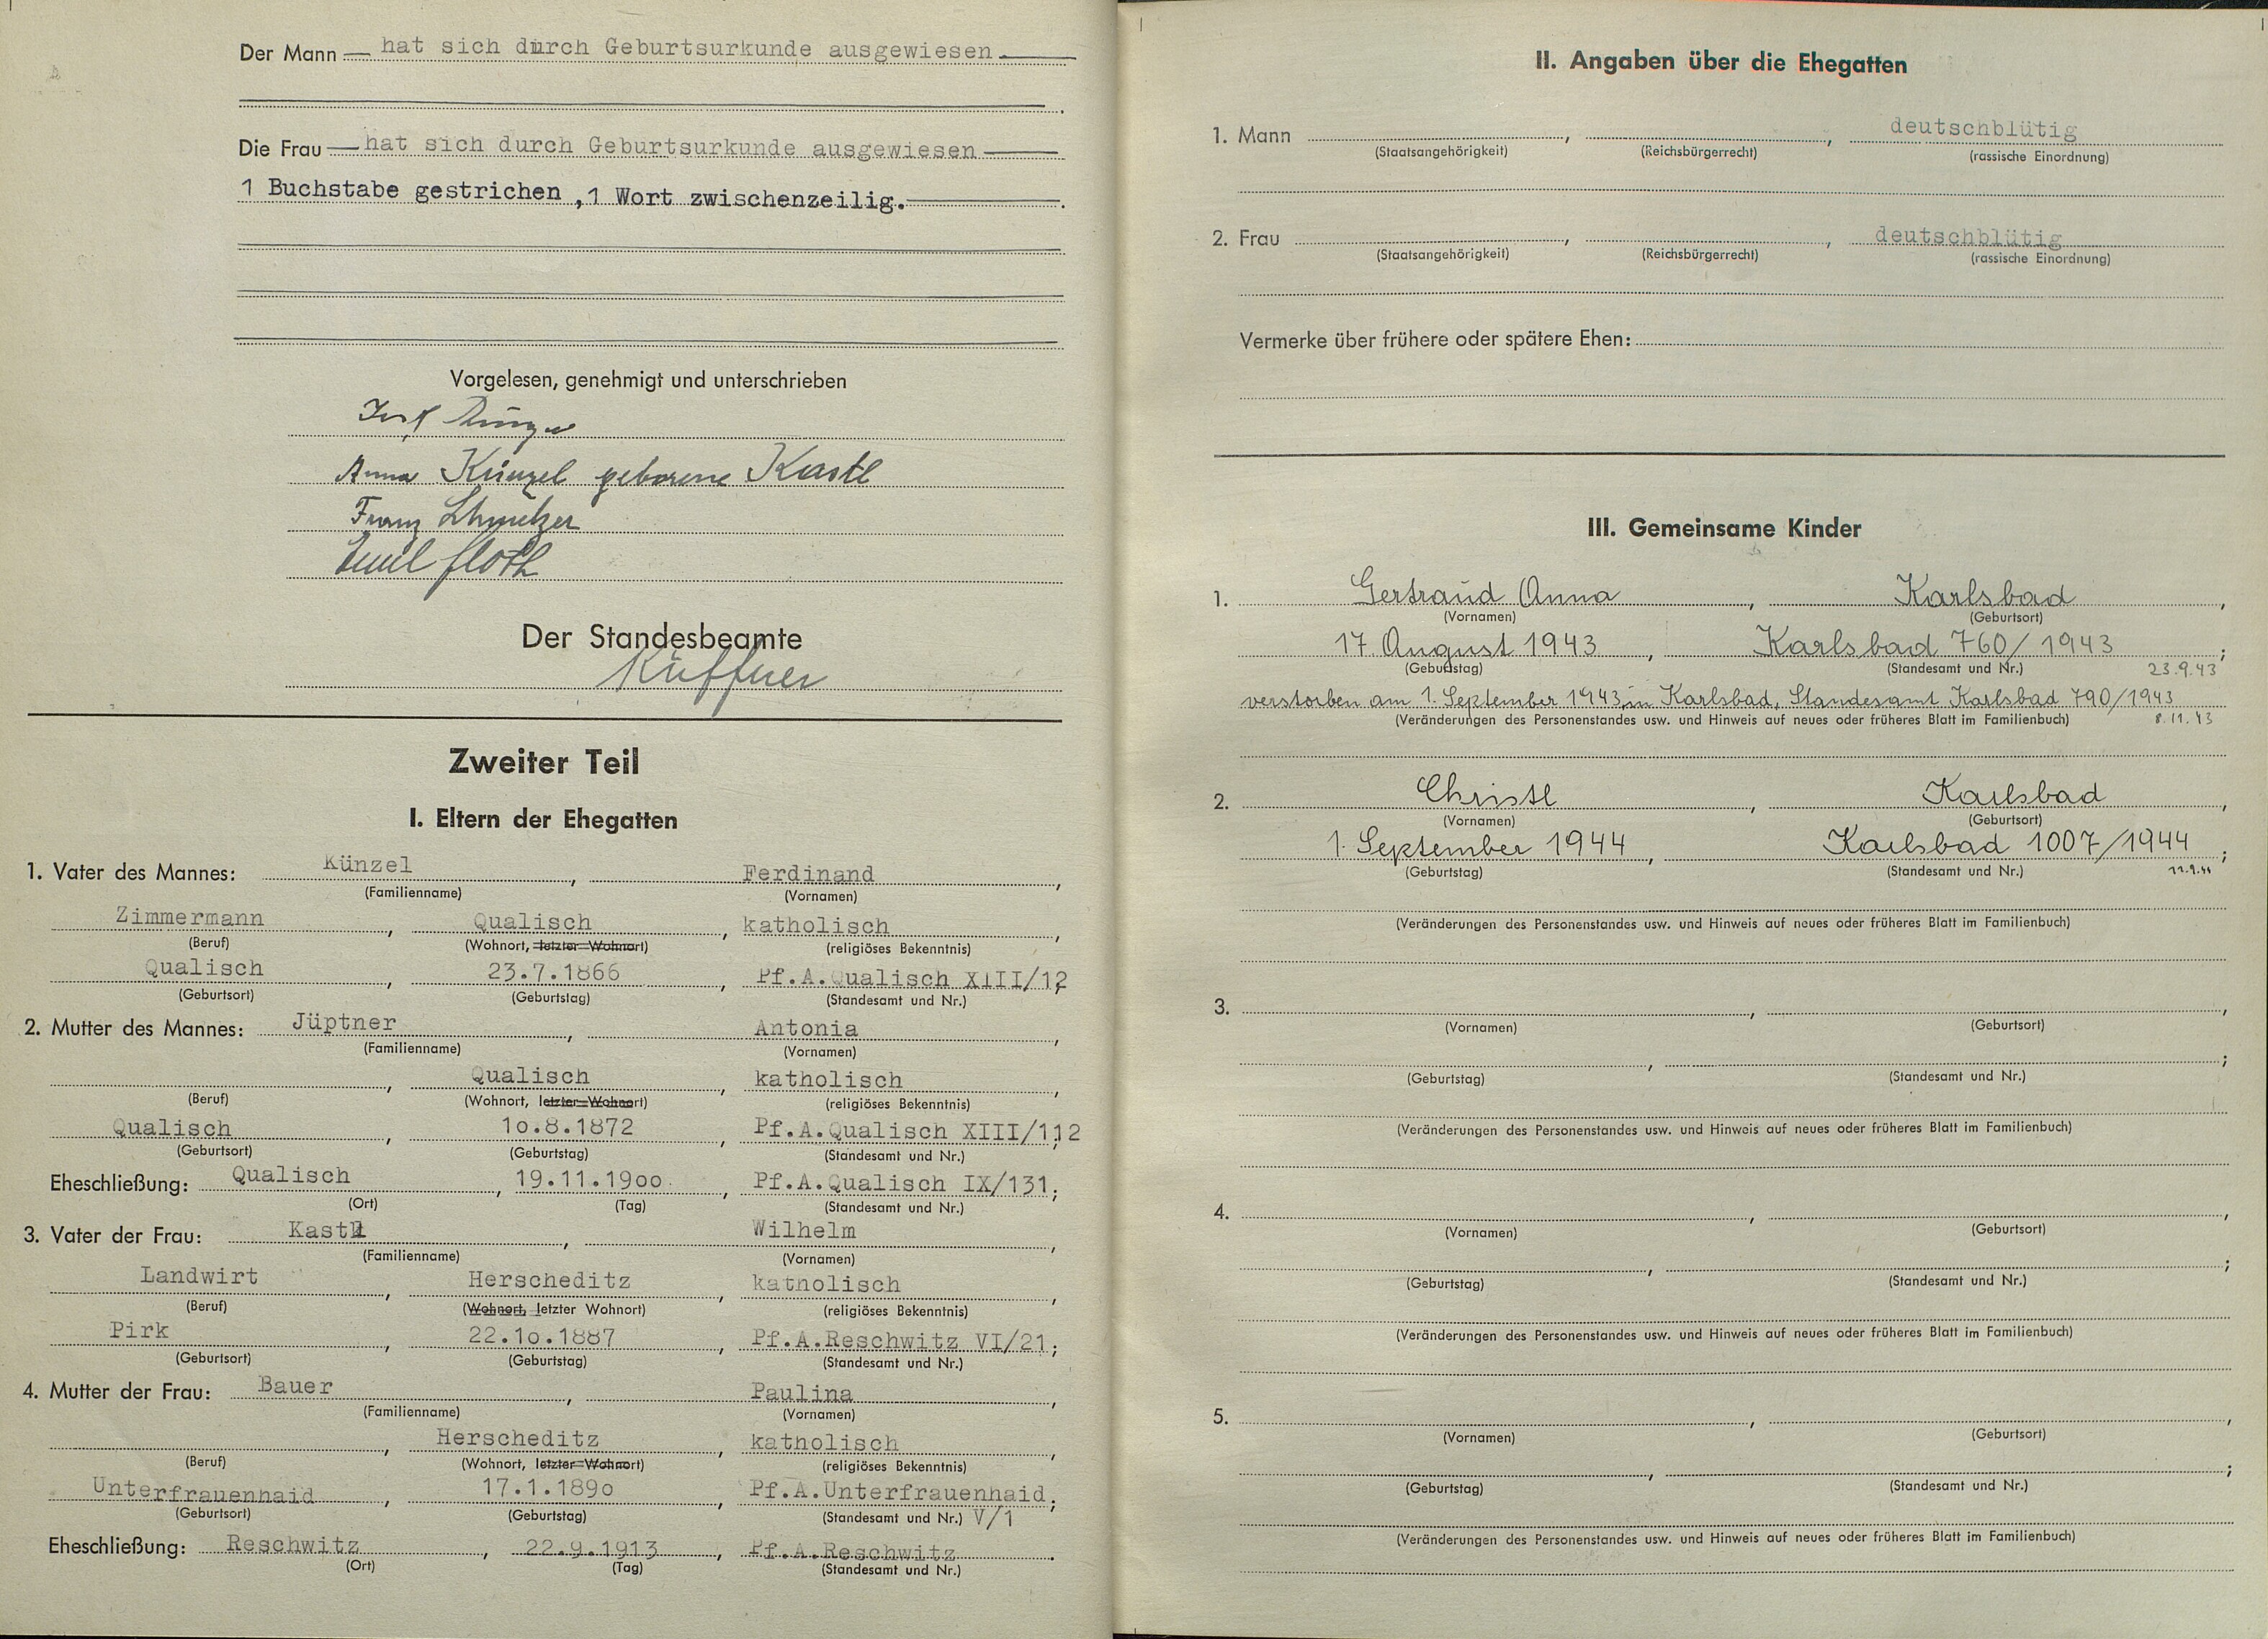 Der Mann hat sich durch Geburtsurkunde ausgewiesen
Die Frau hat sich durch Geburtsurkunde ausgewiesen
1 Buchstabe gestrichen ,1 Wort zwischenzeilig.
Vorgelesen, genehmigt und unterschrieben
Anna Künzel geborene Kastl
Franz
Emil Floth
Der Standesbeamte
Küffner
Zweiter Teil
I. Eltern der Ehegatten
1. Vater des Mannes: Künzel , Ferdinand ,
(Familienname) (Vornamen)
Zimmermann , Qualisch , katholisch ,
(Beruf) (Wohnort, letzter Wohnort) (religiöses Bekenntnis)
Qualisch , 23.7.1866 , Pf.A.Qualisch XIII/12;
(Geburtsort) (Geburtstag) (Standesamt und Nr.)
2. Mutter des Mannes: Jüptner , Antonia ,
(Familienname) (Vornamen)
, Qualisch , katholisch ,
(Beruf) (Wohnort, letzter Wohnort) (religiöses Bekenntnis)
Qualisch , 1o.8.1872 , Pf.A.Qualisch XIII/112;
(Geburtsort) (Geburtstag) (Standesamt und Nr.)
Eheschließung: Qualisch , 19.11.19oo , Pf.A.Qualisch IX/131;
(Ort) (Tag) (Standesamt und Nr.)
3. Vater der Frau: Kastl , Wilhelm ,
(Familienname) (Vornamen)
Landwirt , Herscheditz , katholisch ,
(Beruf) (Wohnort, letzter Wohnort) (religiöses Bekenntnis)
Pirk , 22.1o.1887 , Pf.A.Reschwitz VI/21;
(Geburtsort) (Geburtstag) (Standesamt und Nr.)
4. Mutter der Frau: Bauer , Paulina ,
(Familienname) (Vornamen)
, Herscheditz , katholisch ,
(Beruf) (Wohnort, letzter Wohnort) (religiöses Bekenntnis)
Unterfrauenhaid , 17.1.189o , Pf.A.Unterfrauenhaid;
(Geburtsort) (Geburtstag) (Standesamt und Nr.) V/1
Eheschließung: Reschwitz , 22.9.1913 , Pf.A.Reschwitz .
(Ort) (Tag) (Standesamt und Nr.)
II. Angaben über die Ehegatten
1. Mann , , deutschblütig
(Staatsangehörigkeit) (Reichsbürgerrecht) (rassische Einordnung)
2. Frau , , deutschblütig
(Staatsangehörigkeit) (Reichsbürgerrecht) (rassische Einordnung)
Vermerke über frühere oder spätere Ehen:
III. Gemeinsame Kinder
1. Gertraud Anna , Karlsbad ,
(Vornamen) (Geburtsort)
17. August 1943 , Karlsbad 760/1943 ;
(Geburtstag) (Standesamt und Nr.) 23.9.43
verstorben am 1. September 1943 in Karlsbad, Standesamt Karlsbad 790/1943
(Veränderungen des Personenstandes usw. und Hinweis auf neues oder früheres Blatt im Familienbuch) 8.11.43
2. Christl , Karlsbad ,
(Vornamen) (Geburtsort)
1. September 1944 , Karlsbad 1007/1944 ;
(Geburtstag) (Standesamt und Nr.)
(Veränderungen des Personenstandes usw. und Hinweis auf neues oder früheres Blatt im Familienbuch)
3. , ,
(Vornamen) (Geburtsort)
, ;
(Geburtstag) (Standesamt und Nr.)
(Veränderungen des Personenstandes usw. und Hinweis auf neues oder früheres Blatt im Familienbuch)
4. , ,
(Vornamen) (Geburtsort)
, ;
(Geburtstag) (Standesamt und Nr.)
(Veränderungen des Personenstandes usw. und Hinweis auf neues oder früheres Blatt im Familienbuch)
5. , ,
(Vornamen) (Geburtsort)
, ;
(Geburtstag) (Standesamt und Nr.)
(Veränderungen des Personenstandes usw. und Hinweis auf neues oder früheres Blatt im Familienbuch)